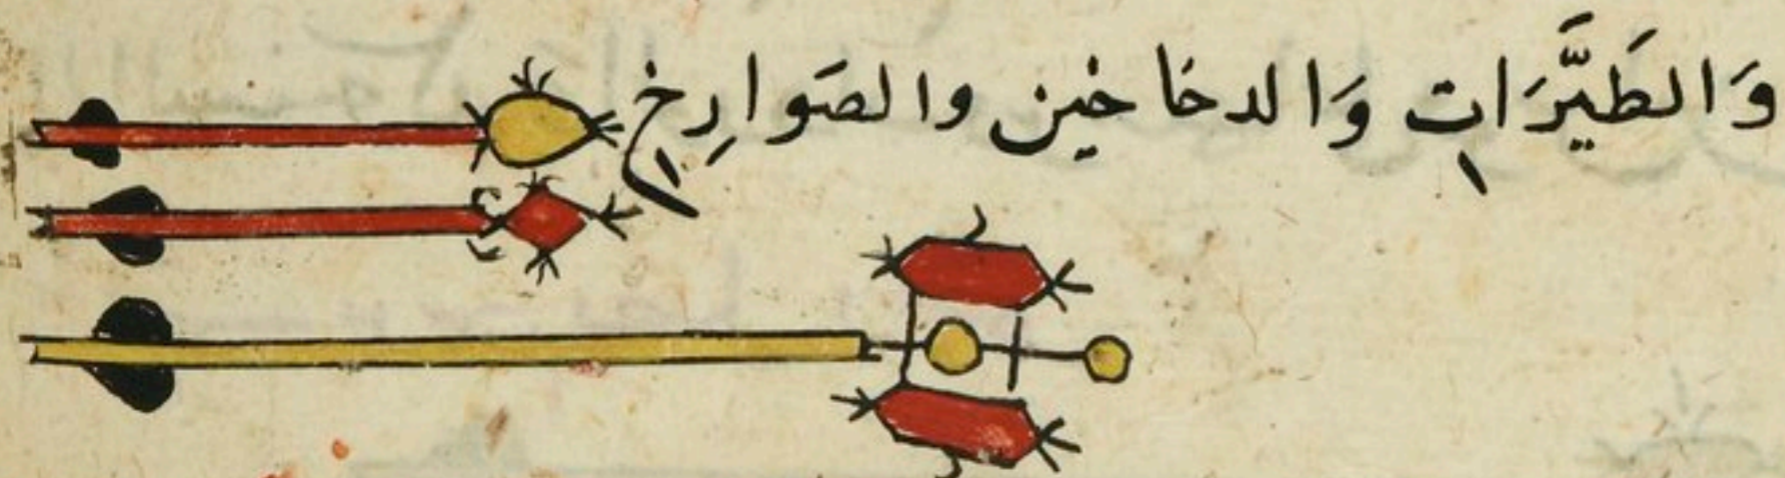 وَالطَيَّرَاتِ وَالدخَاخين والصَوارِخ